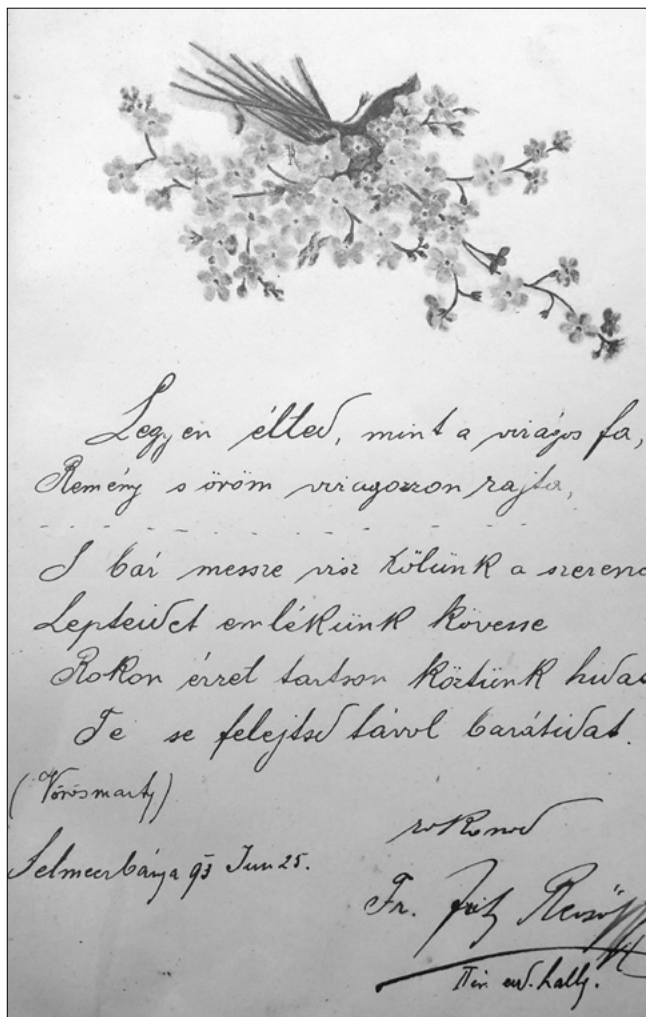 Legyen élted, mint a virágos fa,
Remény s öröm viragozzon rajta,
S bár messze visz tőlünk a szerenc
Lepteidet emlékünk kövesse
Rokon érzet tartson köztünk hidat
Te se felejtsd távol barátidat.
(Vörösmarty)
rokonod
Selmeczbánya 93 Jun 25.
Fr. Fritz
erd. hallg.